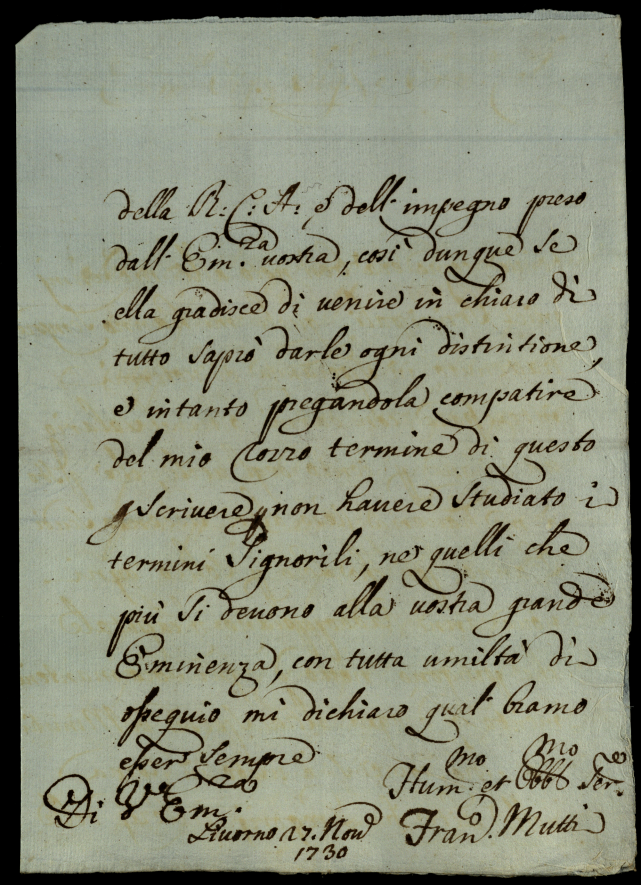 della R: C: A: e dell' impegno preso
dall' Em.za vostra, così dunque se
ella gradisce di venire in chiaro di
tutto saprò darle ogni distintione,
e intanto pregandola compatire
del mio rozzo termine di questo
scrivere, non havere studiato i
termini Signorili, ne quelli che
più si devono alla vostra grande
Eminenza, con tutta umiltà di
ossequio mi dichiaro qual bramo
esser sempre
Di V.e Em.za
Hum.mo et Obb.mo Ser.e
Livorno 17. Nov.
Fran.o Mutti
1730